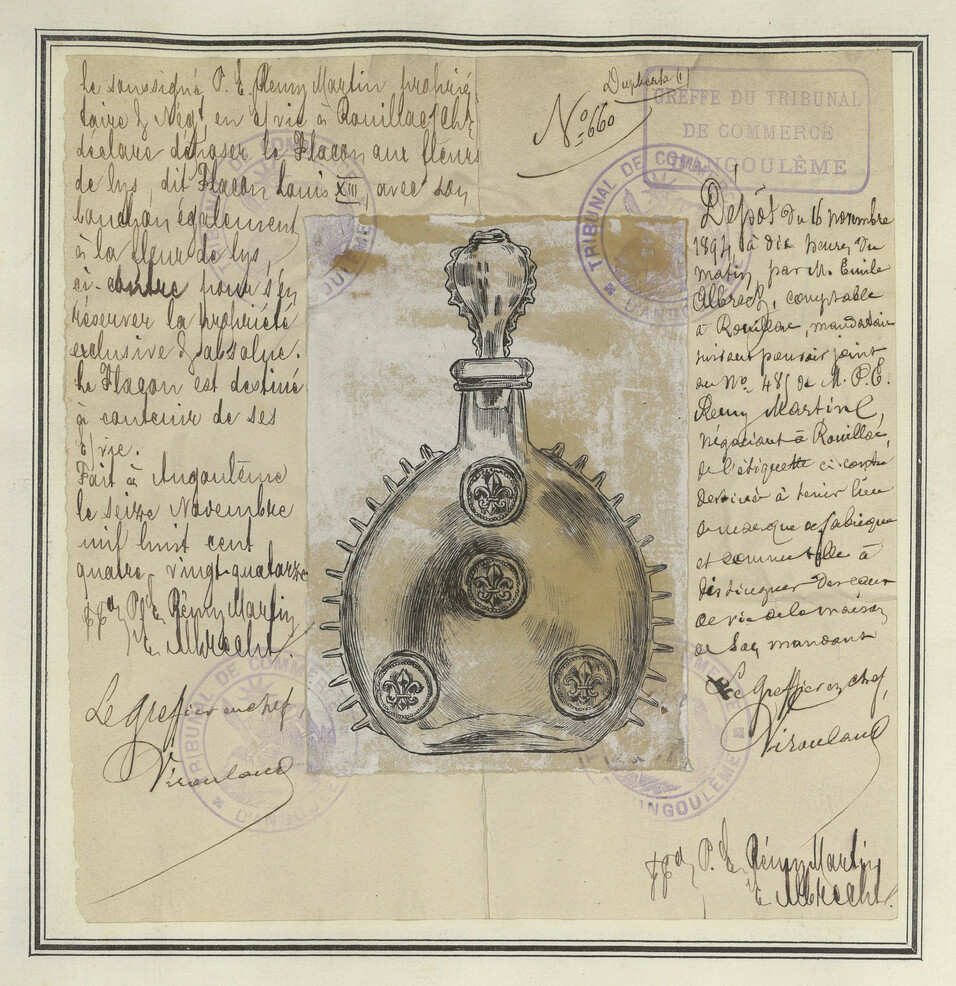 Le soussigné P. E. Remy Martin proprié
taire & Négt en E/vie à Rouillac/Chte
déclare déposer le Flacon aux fleurs
de lys, dit Flacon Louis XIII avec son
bouchon également
à la fleur de lys,
ci-contre pour s'en
réserver la propriété
exclusive & absolue.
Le Flacon est destiné
à contenir de ses
E/vie.
Fait à Angoulême
le seize Novembre
mil huit cent
quatre vingt quatorze
P. E. Rémy Martin
E. Albrecht
Le Greffier en chef,
Duplicata (1)
No 660
GREFFE DU TRIBUNAL
DE COMMERCE
D'ANGOULÊME
Dépôt du 16 novembre
1894 à dix heures du
matin par M. Emile
Albrecht, comptable
à Rouillac, mandataire
suivant pouvoir joint
au No 485 de M. P. E.
Remy Martin,
négociant à Rouillac,
de l'étiquette ci-contre
destinée à tenir lieu
de marque de fabrique
et commerce à
distinguer des eaux
de vie de la maison
de son mandant
Le Greffier en chef,
P. E. Rémy Martin
E. Albrecht
TRIBUNAL DE COMMERCE
D'ANGOULÊME
TRIBUNAL DE COMMERCE
D'ANGOULÊME
TRIBUNAL DE COMMERCE
D'ANGOULÊME
D'ANGOULÊME